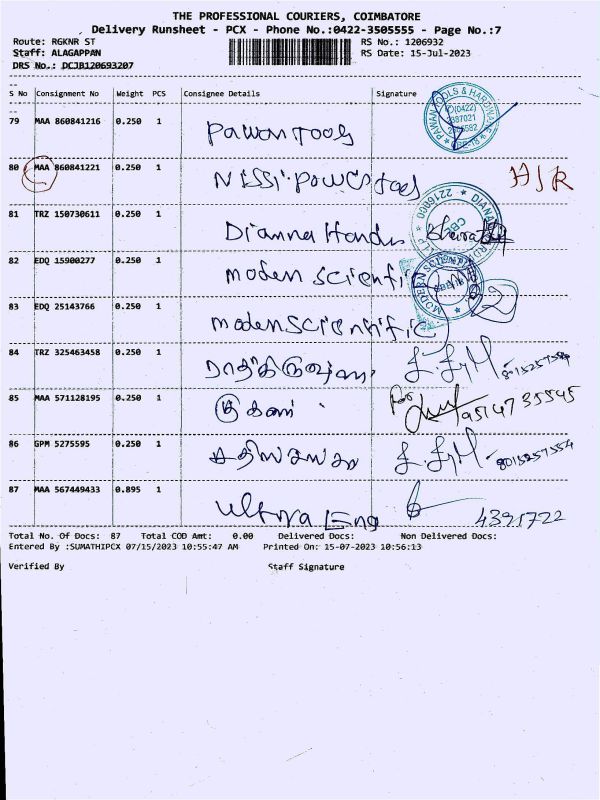 THE PROFESSIONAL COURIERS, COIMBATORE
Delivery Runsheet - PCX - Phone No.:0422-3505555 - Page No.:7
Route: RGKNR ST RS No.: 1206932
Staff: ALAGAPPAN RS Date: 15-Jul-2023
DRS No.: DCJB120693207
S No Consignment No Weight PCS Consignee Details Signature
79 MAA 860841216 0.250 1 Pawan tools
80 MAA 860841221 0.250 1 Nissi.Powertools
81 TRZ 150730611 0.250 1 Dianna
82 EDQ 15900277 0.250 1 moden scientific
83 EDQ 25143766 0.250 1 moden scientific
84 TRZ 325463458 0.250 1
85 MAA 571128195 0.250 1 9514735545
86 GPM 5275595 0.250 1
87 MAA 567449433 0.895 1 Ultra Eng 4391722
Total No. Of Docs: 87 Total COD Amt: 0.00 Delivered Docs: Non Delivered Docs:
Entered By :SUMATHIPCX 07/15/2023 10:55:47 AM Printed On: 15-07-2023 10:56:13
Verified By Staff Signature